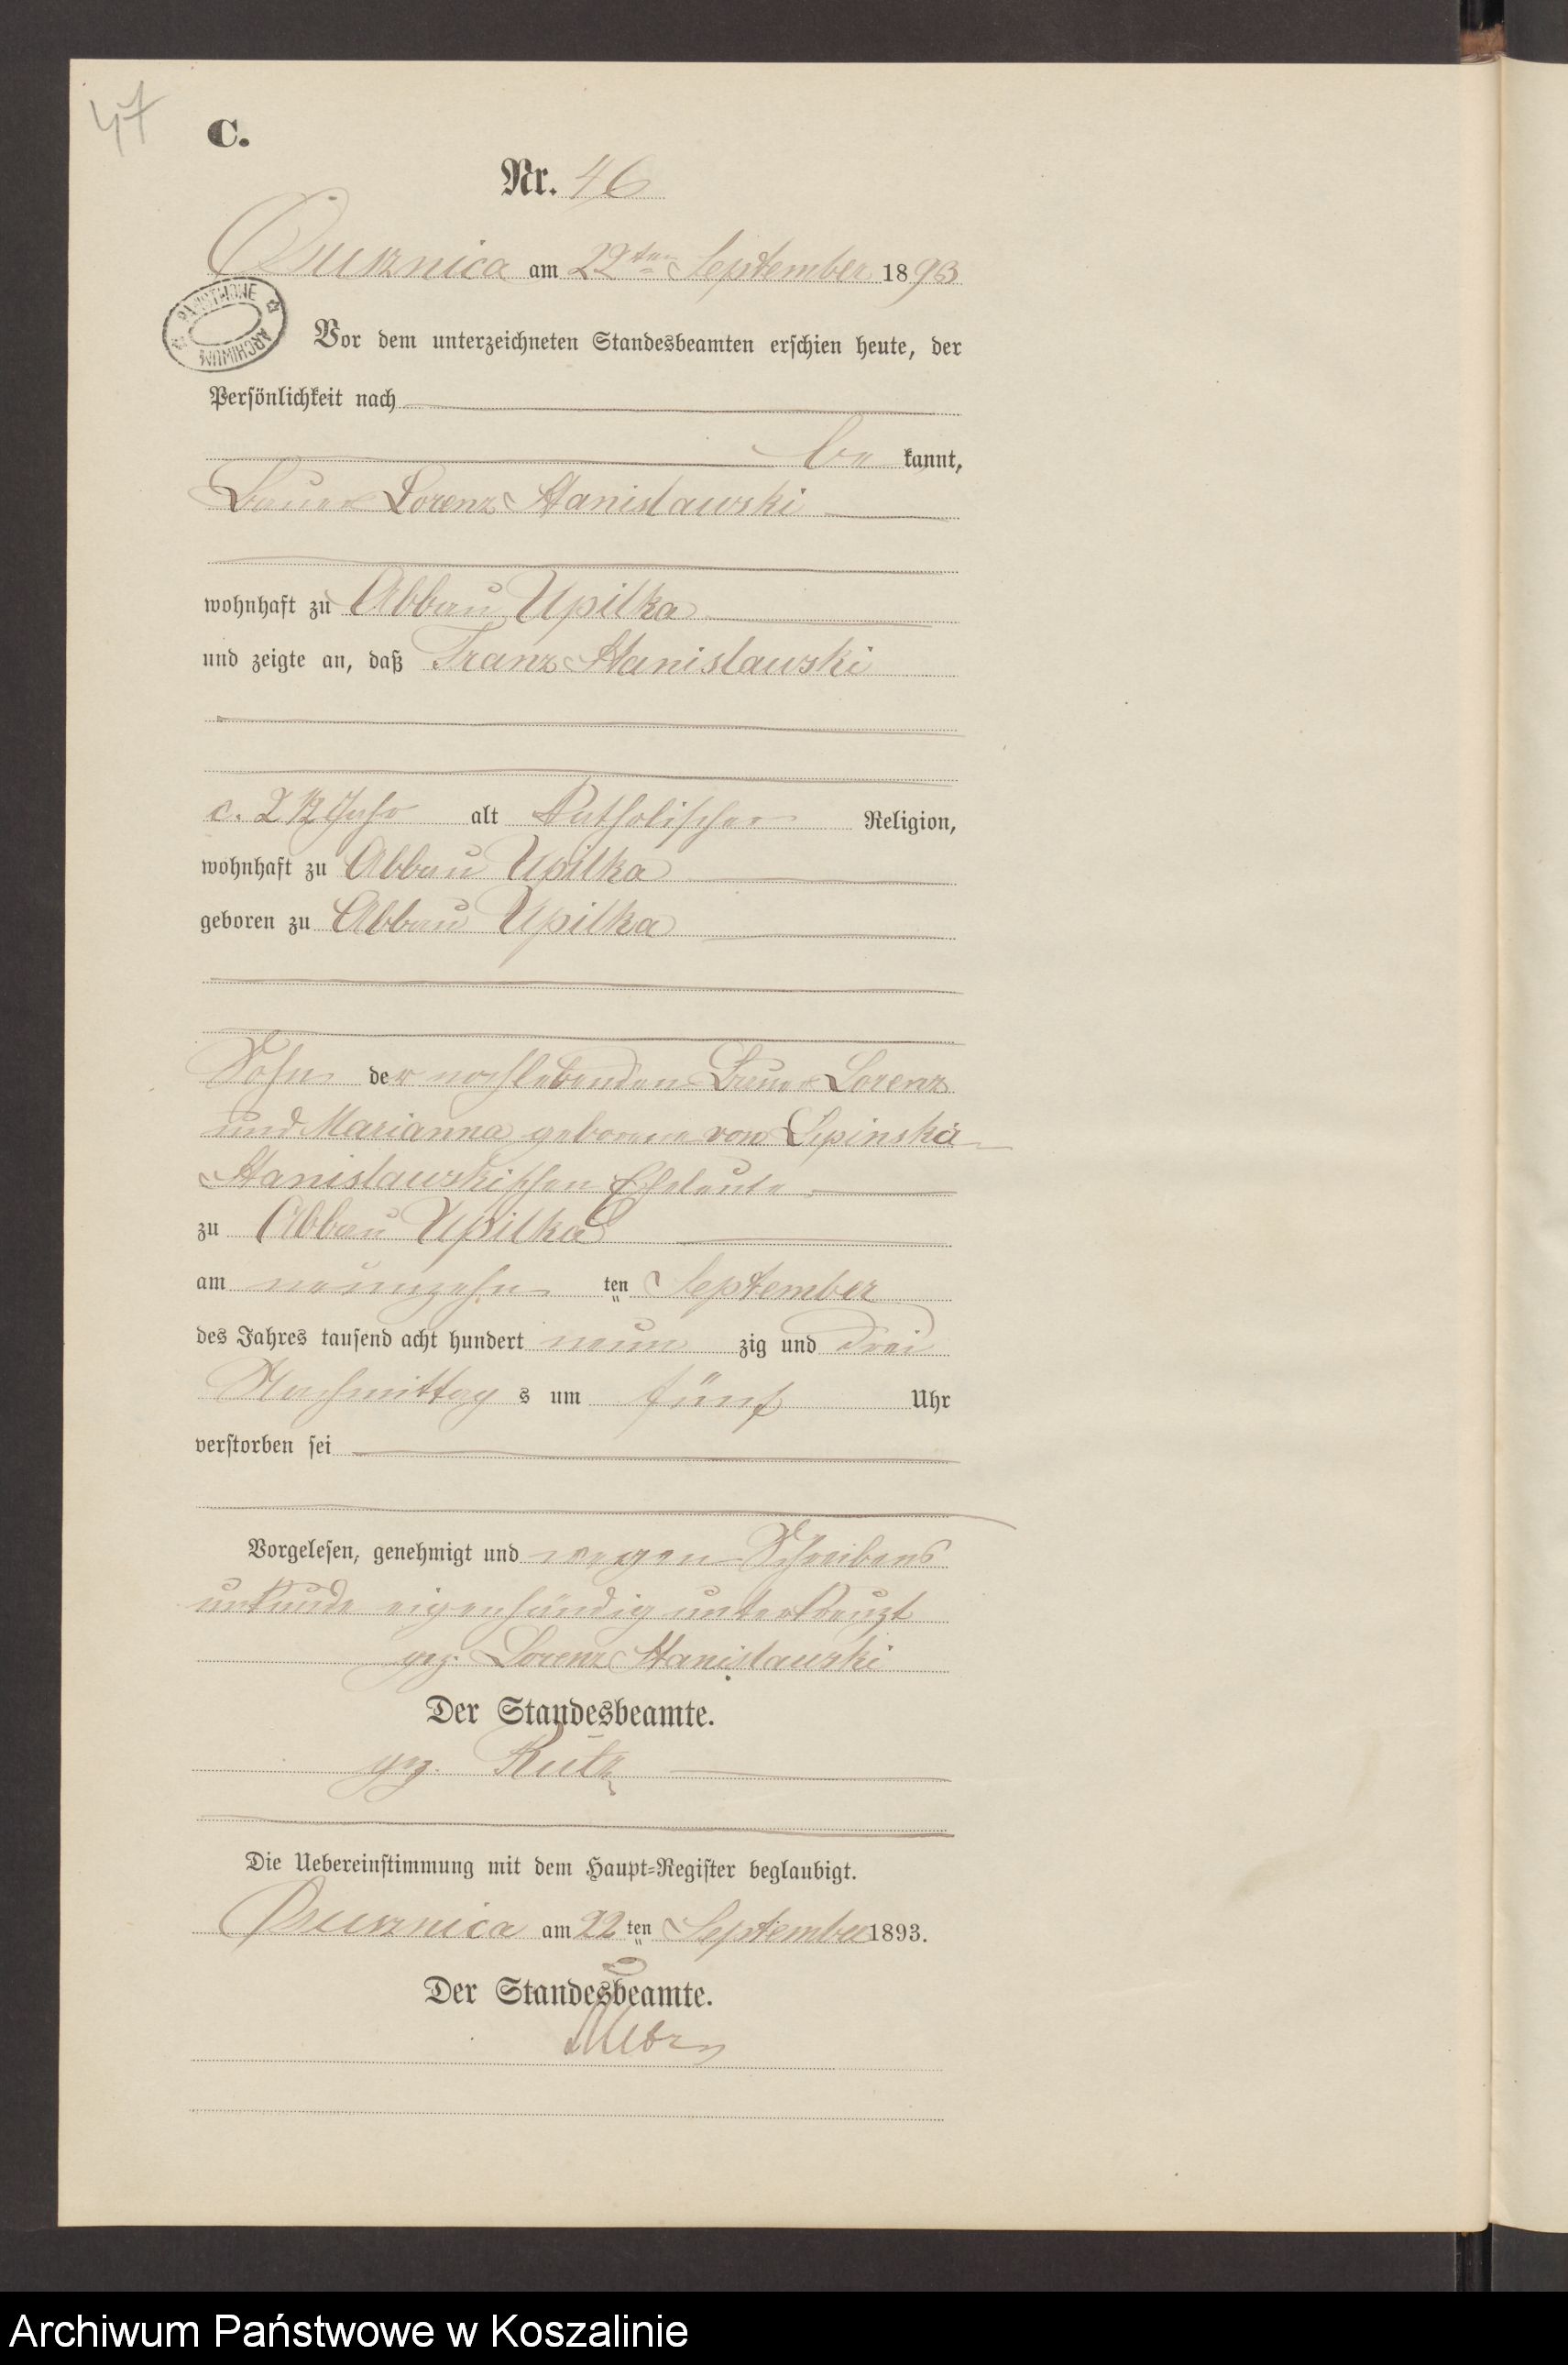 47
C.
Nr. 46
am 22ten September 1893
PAŃSTWOWE ARCHIWUM
Vor dem unterzeichneten Standesbeamten erschien heute, der
Persönlichkeit nach
be kannt,
Bauer Lorenz Stanislawski
wohnhaft zu Abbau Upilka
und zeigte an, daß Franz Stanislawski
c. 2 1/2 Jahr alt Katholischer Religion,
wohnhaft zu Abbau Upilka
geboren zu Abbau Upilka
Sohn der noch lebenden Bauer Lorenz
und Marianna geborene von
Stanislawskischen Eheleute
zu Abbau Upilka
am neunzehn ten September
des Jahres tausend acht hundert neun zig und drei
Nachmittag s um fünf Uhr
verstorben sei
Vorgelesen, genehmigt und wegen Schreibens
unkunde eigenhändig unterkreuzt
gez. Lorenz Stanislawski
Der Standesbeamte.
gez.
Die Uebereinstimmung mit dem Haupt=Register beglaubigt.
am 22 ten September 1893.
Der Standesbeamte.
Archiwum Państwowe w Koszalinie